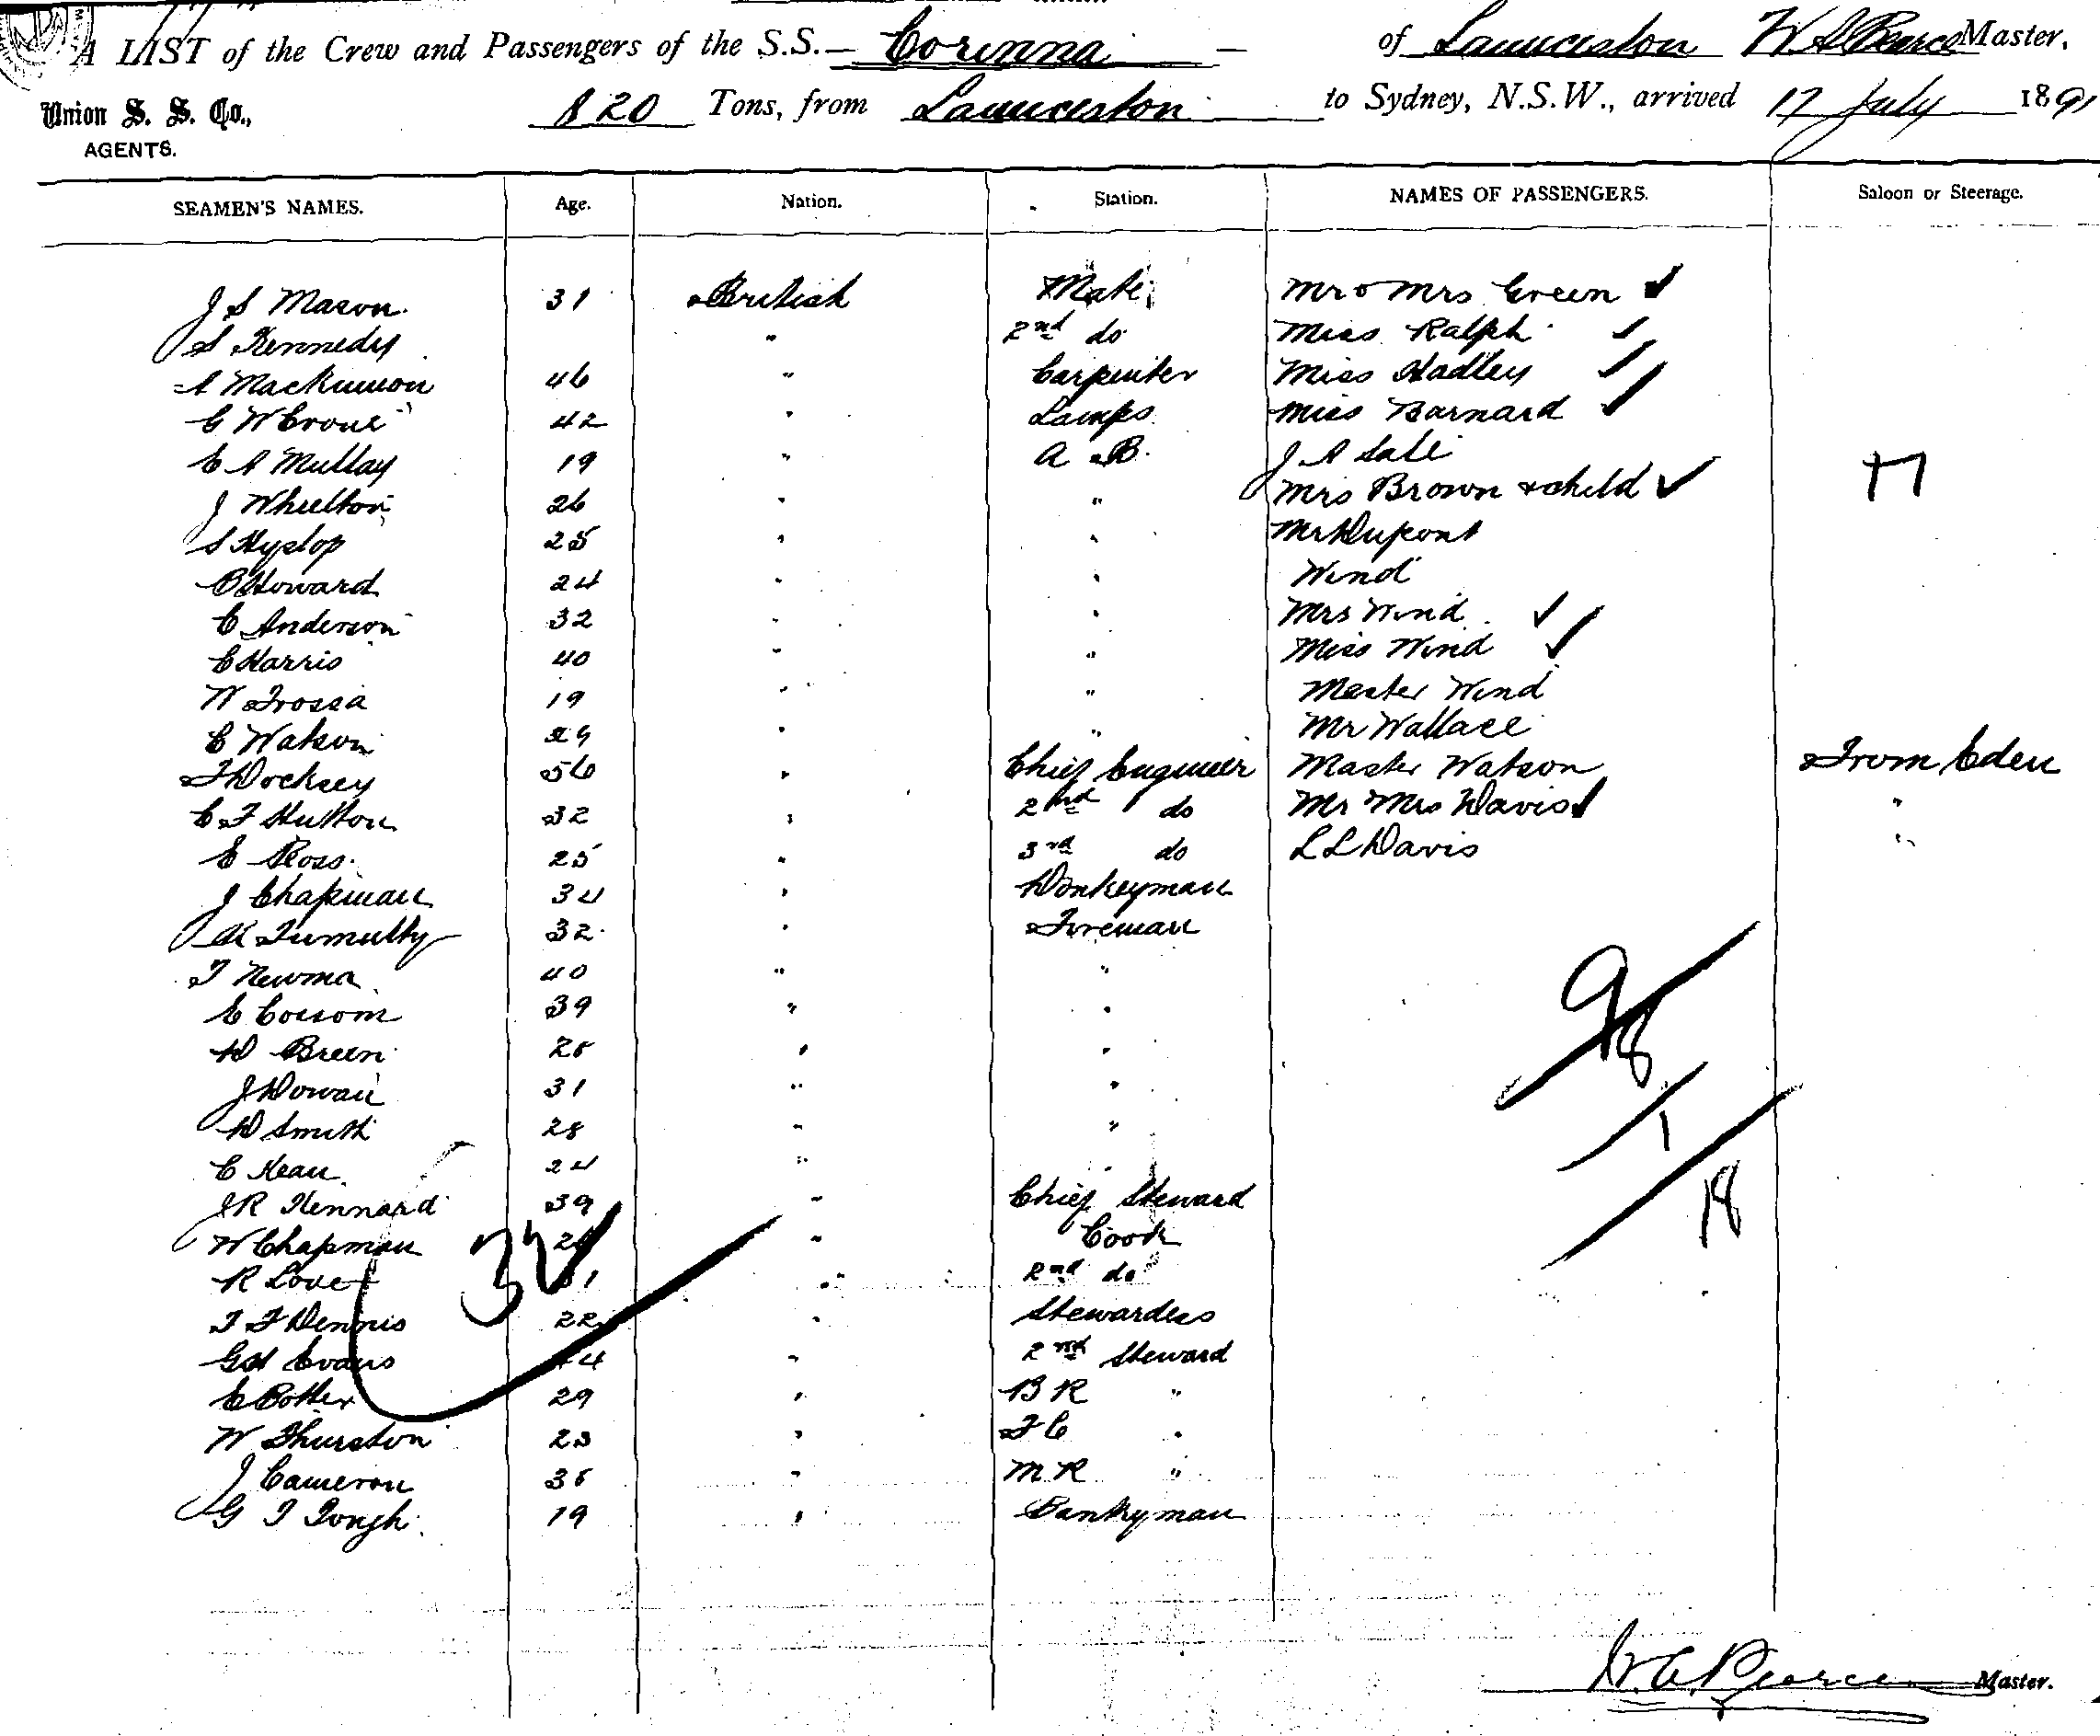 A LIST of the Crew and Passengers of the S.S. Corinna of Launceston W A Pearce Master,
Union S. S. Co., 820 Tons, from Launceston to Sydney, N.S.W., arrived 17 July 1891
AGENTS.
SEAMEN'S NAMES. Age. Nation. Station. NAMES OF PASSENGERS. Saloon or Steerage.
J S Mason 31 British Mate Mr & Mrs Green ✓
S Kennedy " 2nd do Miss Ralph ✓
A Mackinnon 46 " Carpenter Miss Hadley ✓
G W Crone 42 " Lamps Miss Barnard ✓
E A Mullay 19 " A B. J A Sale
J Wheelton 26 " " Mrs Brown & child ✓ 17
S Hyslop 25 " " Mr Dupont
Howard 24 " " Wind
C Anderson 32 " " Mrs Wind ✓
C Harris 40 " " Miss Wind ✓
W 19 " " Master Wind
C Watson 29 " " Mr Wallace
F Docksey 56 " Chief Engineer Master Watson From Eden
C F Hutton 32 " 2nd do Mr Mrs Davis ✓ "
E Ross 25 " 3rd do L L Davis "
J Chapman 34 " Donkeyman
Tumulty 32 " Fireman
T Newma 40 " "
E Cossom 39 " "
D Breen 28 " "
J Dowan 31 " "
D Smith 28 " "
C Kean 24 " "
J R Kennard 39 " Chief Steward
W Chapman " Cook
R Love 31 " 2nd do
T F Dennis 22 " Stewardess
G H Evans 44 " 2nd Steward
C Potter 29 " B R "
W Thurston 23 " F C "
J Cameron 35 " M R "
G T Gough 19 " Pantryman
32
9/8
1
18
W. A. Pearce Master.